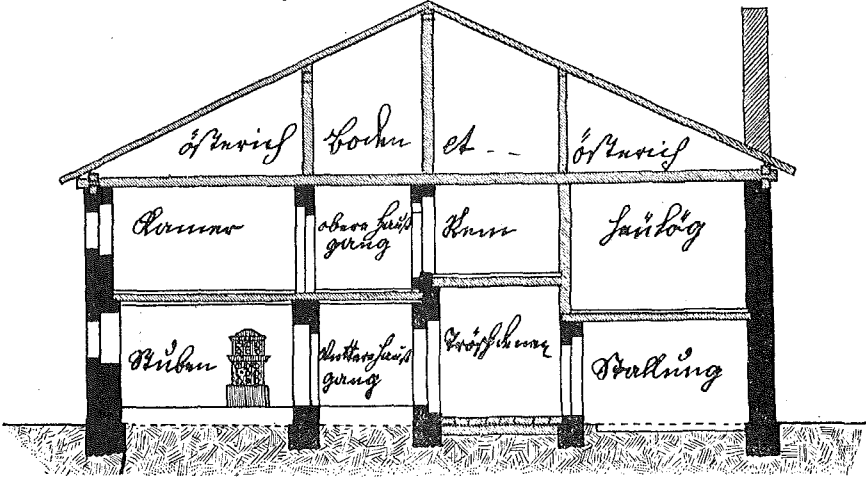 österich Boden et - - österich
Kamer
obere Hauß
gang
Rem
Heüläg
Stuben
Unttere Hauß
gang
Tröschdenen
Stallung